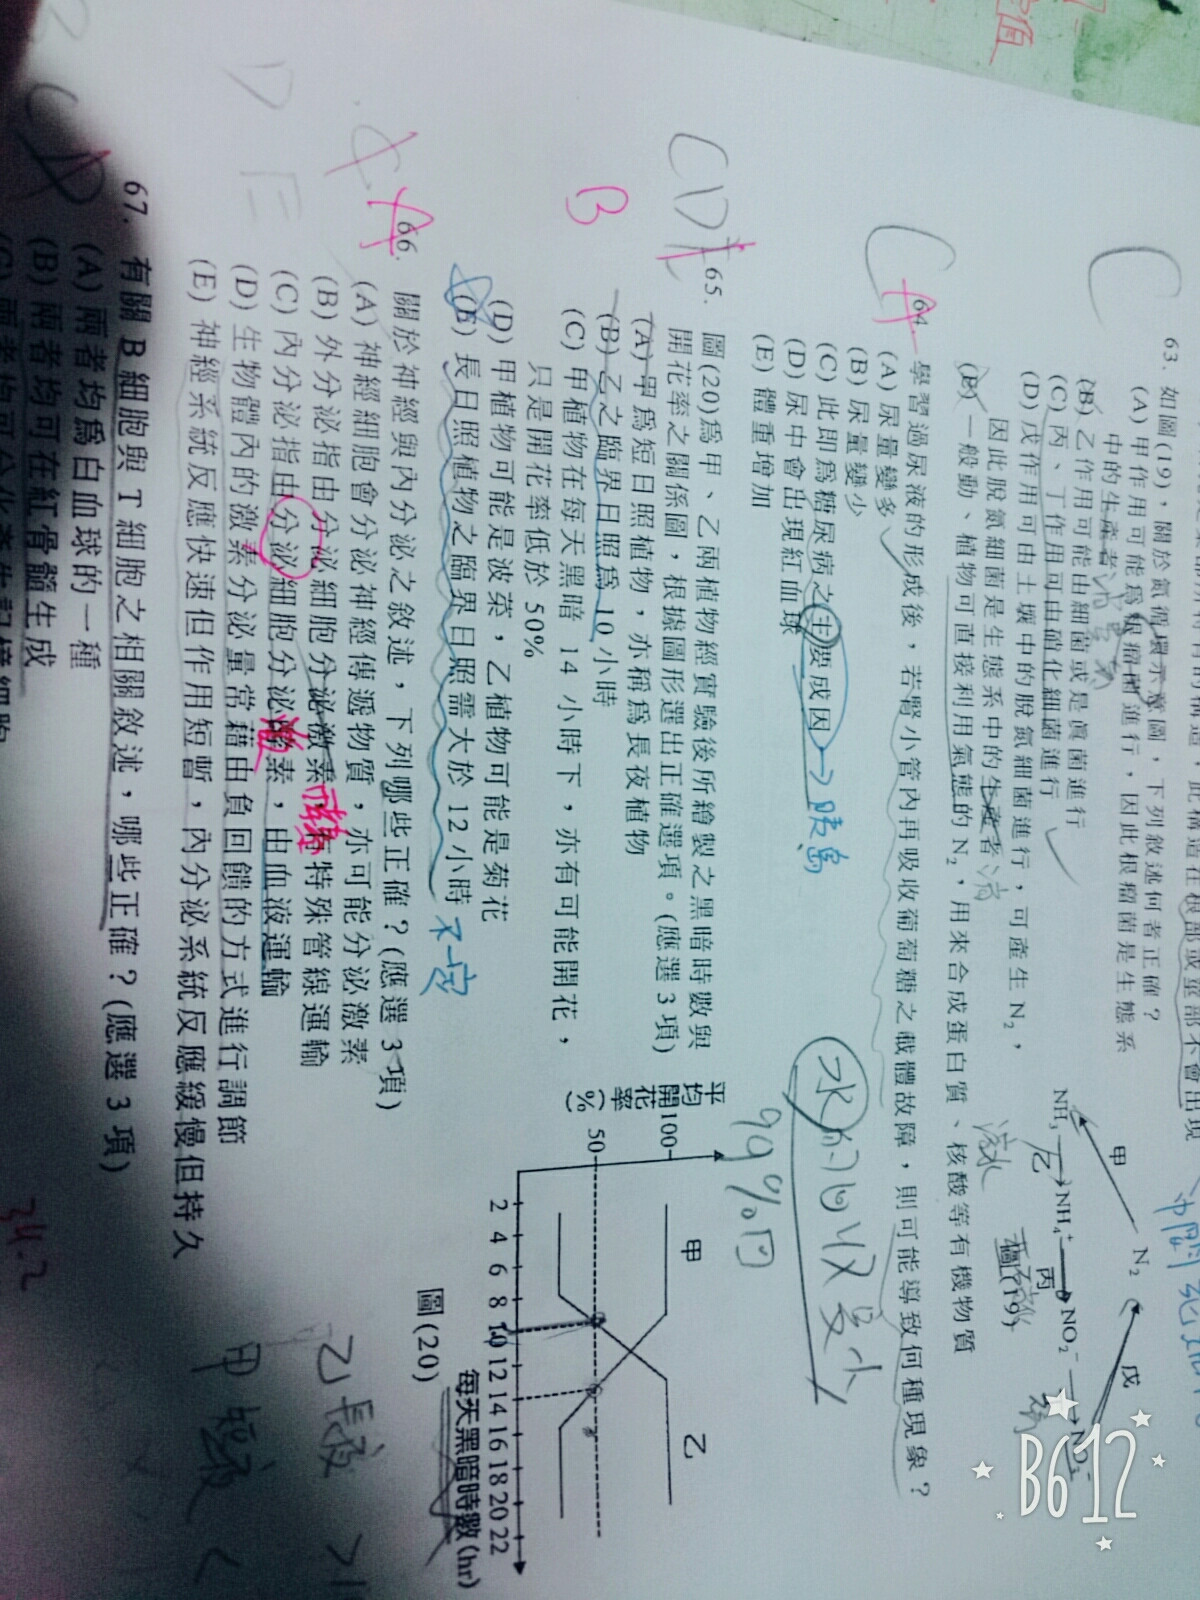 63. 如圖(19)，關於氮循環示意圖，下列敘述何者正確？
(A) 甲作用可能為根瘤菌進行，因此根瘤菌是生態系
中的生產者
(B) 乙作用可能由細菌或是真菌進行
(C) 丙、丁作用可由硝化細菌進行
(D) 戊作用可由土壤中的脫氮細菌進行，可產生 N₂，
因此脫氮細菌是生態系中的生產者
(E) 一般動、植物可直接利用氣態的 N₂，用來合成蛋白質、核酸等有機物質
甲
N₂
戊
NH₃
乙
NH₄⁺
丙
NO₂⁻
NO₃⁻
圖(19)
C
64. 學習過尿液的形成後，若腎小管內再吸收葡萄糖之載體故障，則可能導致何種現象？
(A) 尿量變多
(B) 尿量變少
(C) 此即為糖尿病之主要成因
胰島
(D) 尿中會出現紅血球
(E) 體重增加
C
A
水的吸收變少
99%回
65. 圖(20)為甲、乙兩植物經實驗後所繪製之黑暗時數與
開花率之關係圖，根據圖形選出正確選項。(應選 3 項)
(A) 甲為短日照植物，亦稱為長夜植物
(B) 乙之臨界日照為 10 小時
(C) 甲植物在每天黑暗 14 小時下，亦有可能開花，
只是開花率低於 50%
(D) 甲植物可能是波菜，乙植物可能是菊花
(E) 長日照植物之臨界日照需大於 12 小時
不一定
CD
B
平均開花率(%)
100
50
甲
乙
2 4 6 8 10 12 14 16 18 20 22
每天黑暗時數(hr)
圖(20)
乙長夜 >
甲短夜 <
66. 關於神經與內分泌之敘述，下列哪些正確？(應選 3 項)
(A) 神經細胞會分泌神經傳遞物質，亦可能分泌激素
(B) 外分泌指由分泌細胞分泌激素，有特殊管線運輸
(C) 內分泌指由分泌細胞分泌激素，由血液運輸
(D) 生物體內的激素分泌量常藉由負回饋的方式進行調節
(E) 神經系統反應快速但作用短暫，內分泌系統反應緩慢但持久
A
D E
67. 有關 B 細胞與 T 細胞之相關敘述，哪些正確？(應選 3 項)
(A) 兩者均為白血球的一種
(B) 兩者均可在紅骨髓生成
34.2
B612